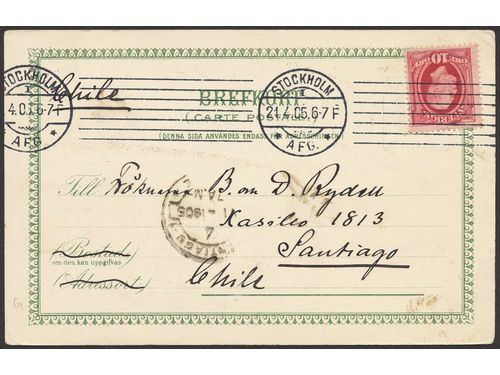 STOCKHOLM
1
4.05.6-7F
AFG.
Chile
BREFKORT
(CARTE POSTALE)
(DENNA SIDA ANVÄNDES ENDAST FÖR ADRESSERINGEN.)
STOCKHOLM
1
21.4.05.6-7F
AFG.
10
SVERIGE
Till Fröknarna B. om D. Rydell
Kasileo 1813
Santiago
Chile
Bostad
om den kan uppgifvas
Adressort
1905
7 A.M.